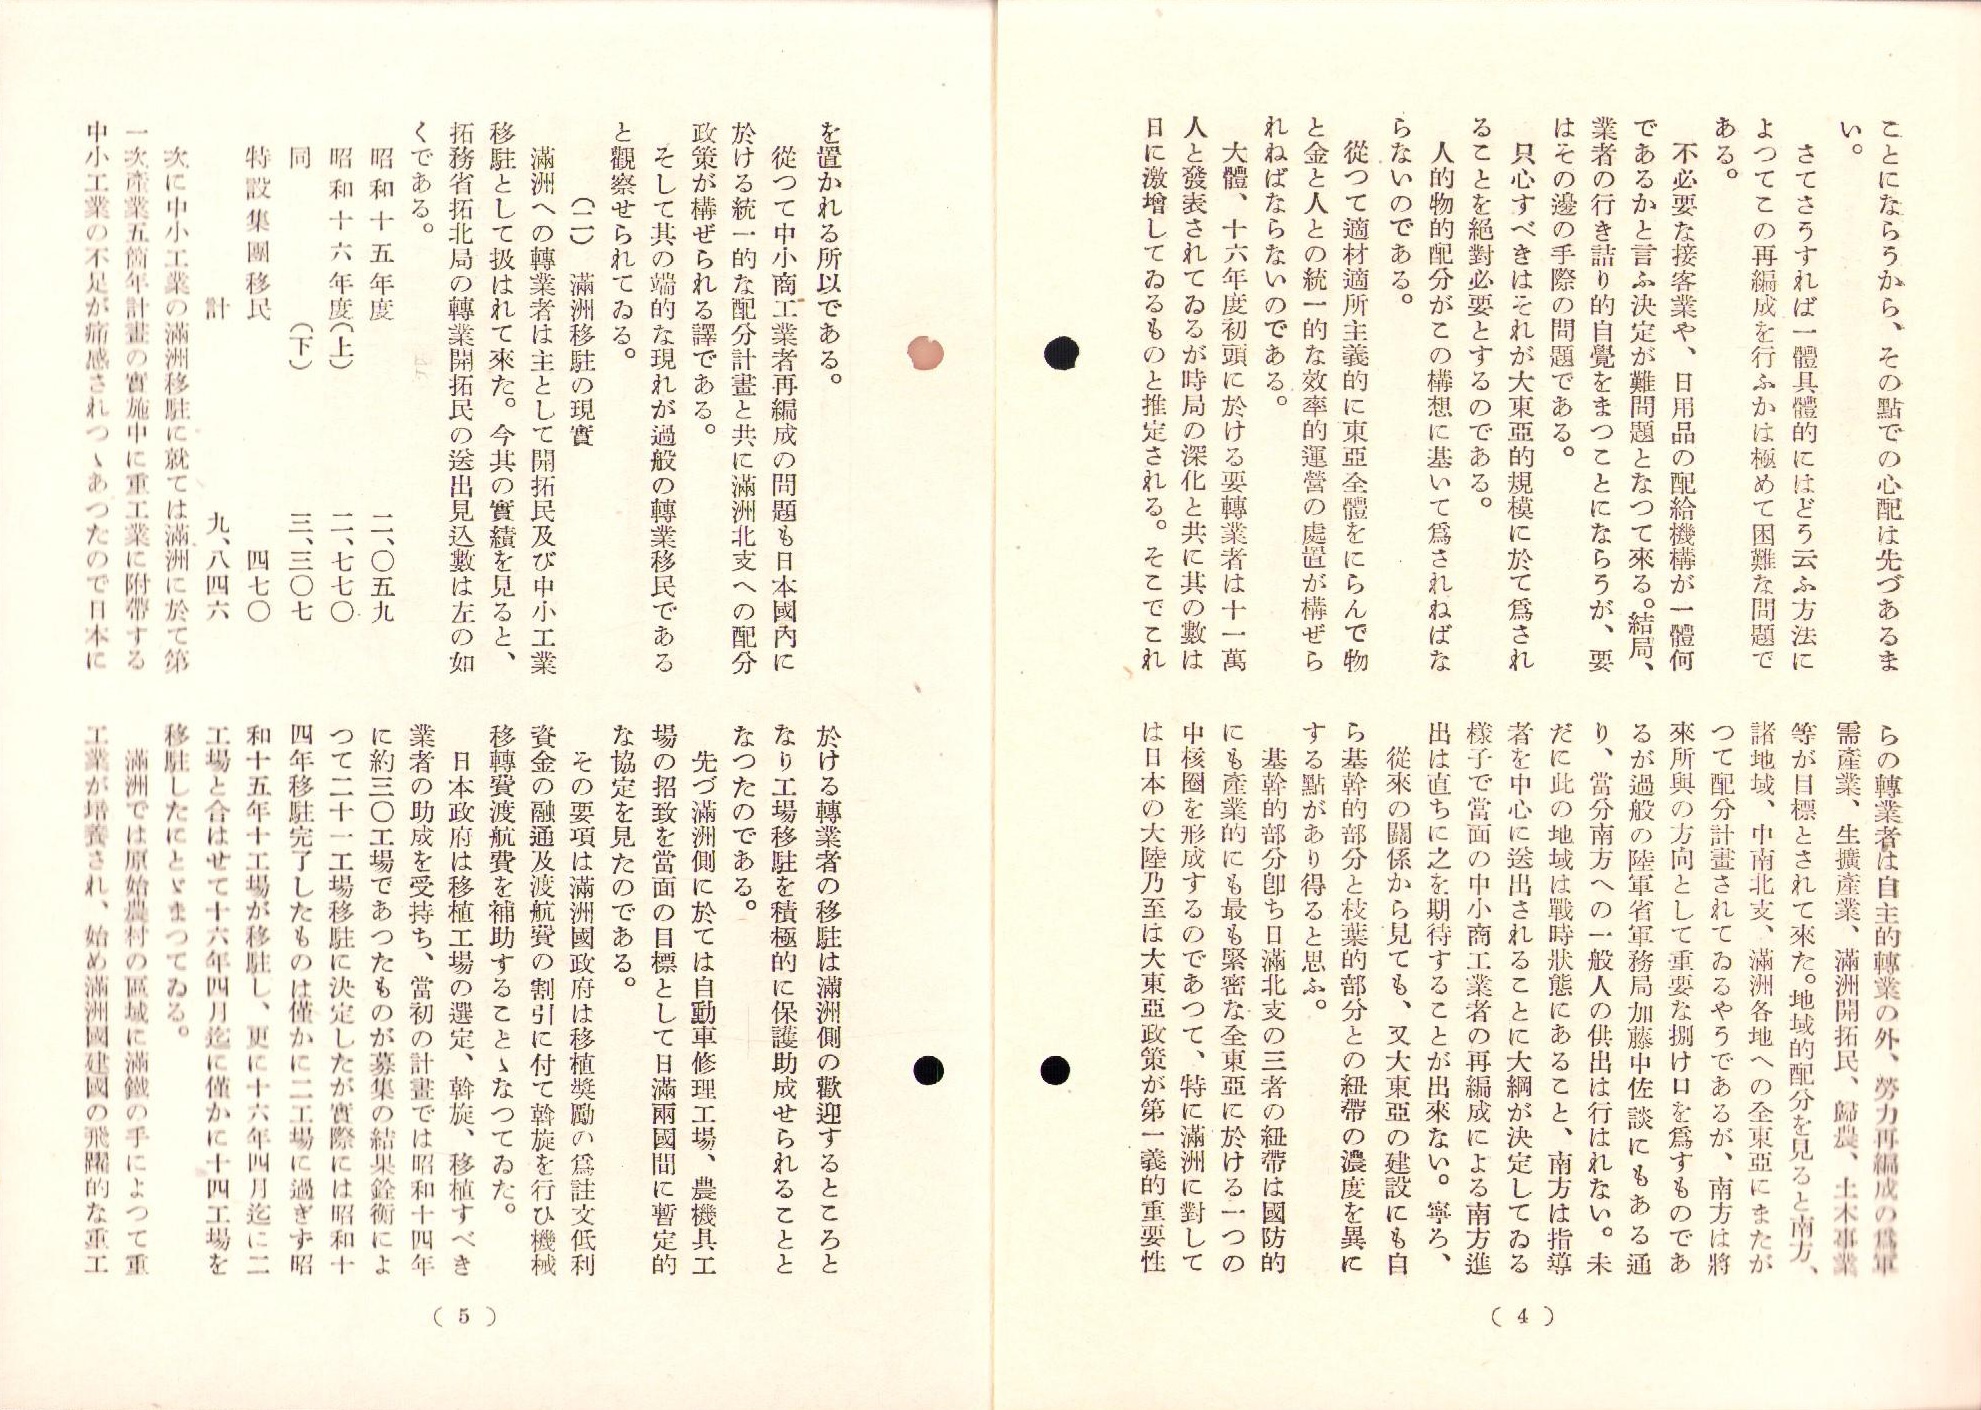 ことにならうから、その點での心配は先づあるま
い。
さてさうすれば一體具體的にはどう云ふ方法に
よつてこの再編成を行ふかは極めて困難な問題で
ある。
不必要な接客業や、日用品の配給機構が一體何
であるかと言ふ決定が難問題となつて來る。結局、
業者の行き詰り的自覺をまつことにならうが、要
はその邊の手際の問題である。
只心すべきはそれが大東亞的規模に於て爲され
ることを絕對必要とするのである。
人的物的配分がこの構想に基いて爲されねばな
らないのである。
從つて適材適所主義的に東亞全體をにらんで物
と金と人との統一的な效率的運營の處置が構ぜら
れねばならないのである。
大體、十六年度初頭に於ける要轉業者は十一萬
人と發表されてゐるが時局の深化と共に其の數は
日に激增してゐるものと推定される。そこでこれ
らの轉業者は自主的轉業の外、勞力再編成の爲軍
需產業、生擴產業、滿洲開拓民、歸農、土木事業
等が目標とされて來た。地域的配分を見ると南方、
諸地域、中南北支、滿洲各地への全東亞にまたが
つて配分計畫されてゐるやうであるが、南方は將
來所與の方向として重要な捌け口を爲すものであ
るが過般の陸軍省軍務局加藤中佐談にもある通
り、當分南方への一般人の供出は行はれない。未
だに此の地域は戰時狀態にあること、南方は指導
者を中心に送出されることに大綱が決定してゐる
樣子で當面の中小商工業者の再編成による南方進
出は直ちに之を期待することが出來ない。寧ろ、
從來の關係から見ても、又大東亞の建設にも自
ら基幹的部分と枝葉的部分との紐帶の濃度を異に
する點があり得ると思ふ。
基幹的部分卽ち日滿北支の三者の紐帶は國防的
にも產業的にも最も緊密な全東亞に於ける一つの
中核圈を形成するのであつて、特に滿洲に對して
は日本の大陸乃至は大東亞政策が第一義的重要性
( 4 )
を置かれる所以である。
從つて中小商工業者再編成の問題も日本國內に
於ける統一的な配分計畫と共に滿洲北支への配分
政策が構ぜられる譯である。
そして其の端的な現れが過般の轉業移民である
と觀察せられてゐる。
(二) 滿洲移駐の現實
滿洲への轉業者は主として開拓民及び中小工業
移駐として扱はれて來た。今其の實績を見ると、
拓務省拓北局の轉業開拓民の送出見込數は左の如
くである。
昭和十五年度 二、〇五九
昭和十六年度(上) 二、七七〇
同 (下) 三、三〇七
特設集團移民 四七〇
計 九、八四六
次に中小工業の滿洲移駐に就ては滿洲に於て第
一次產業五箇年計畫の實施中に重工業に附帶する
中小工業の不足が痛感されつゝあつたので日本に
於ける轉業者の移駐は滿洲側の歡迎するところと
なり工場移駐を積極的に保護助成せられることと
なつたのである。
先づ滿洲側に於ては自動車修理工場、農機具工
場の招致を當面の目標として日滿兩國間に暫定的
な協定を見たのである。
その要項は滿洲國政府は移植奬勵の爲註文低利
資金の融通及渡航費の割引に付て斡旋を行ひ機械
移轉費渡航費を補助することゝなつてゐた。
日本政府は移植工場の選定、斡旋、移植すべき
業者の助成を受持ち、當初の計畫では昭和十四年
に約三〇工場であつたものが募集の結果銓衡によ
つて二十一工場移駐に決定したが實際には昭和十
四年移駐完了したものは僅かに二工場に過ぎず昭
和十五年十工場が移駐し、更に十六年四月迄に二
工場と合はせて十六年四月迄に僅かに十四工場を
移駐したにとゞまつてゐる。
滿洲では原始農村の區域に滿鐵の手によつて重
工業が培養され、始め滿洲國建國の飛躍的な重工
( 5 )